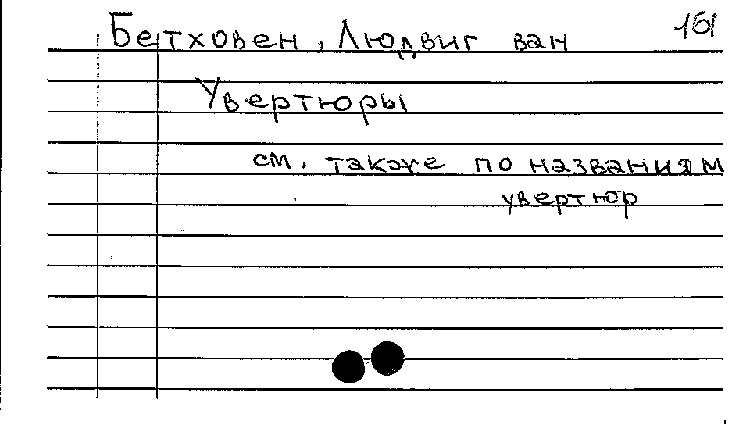 Бетховен, Людвиг ван
161
Увертюры
см. также по названиям
увертюр